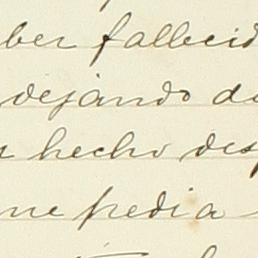 ber fallecid
dejando d
hecho des
me pedia